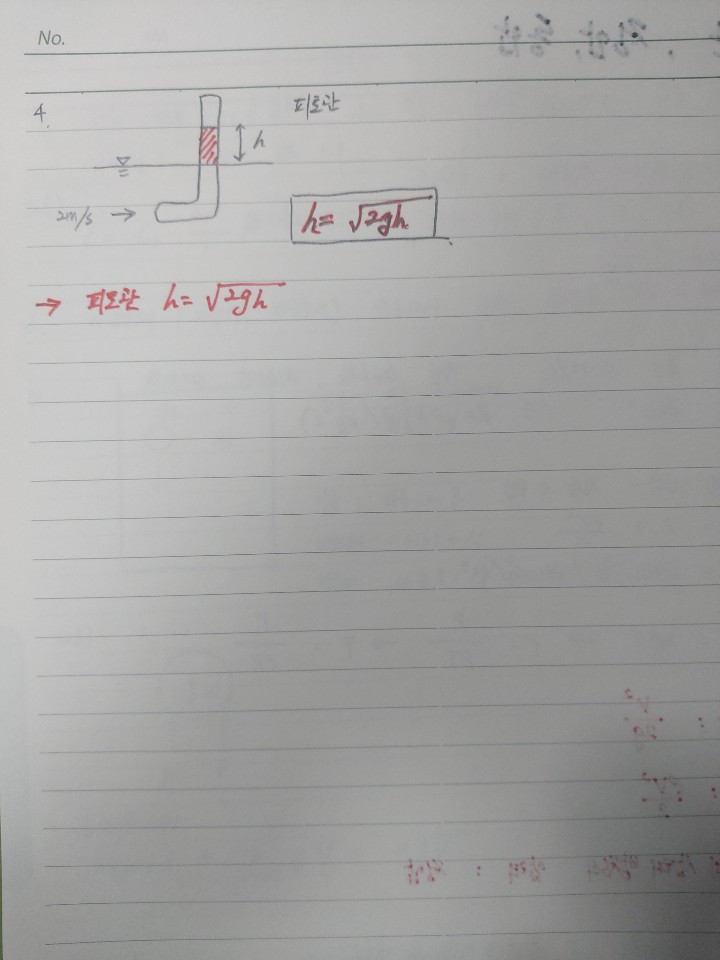 No.
4.
피토관
h
2m/s →
h = √2gh
→ 피토관 h = √2gh